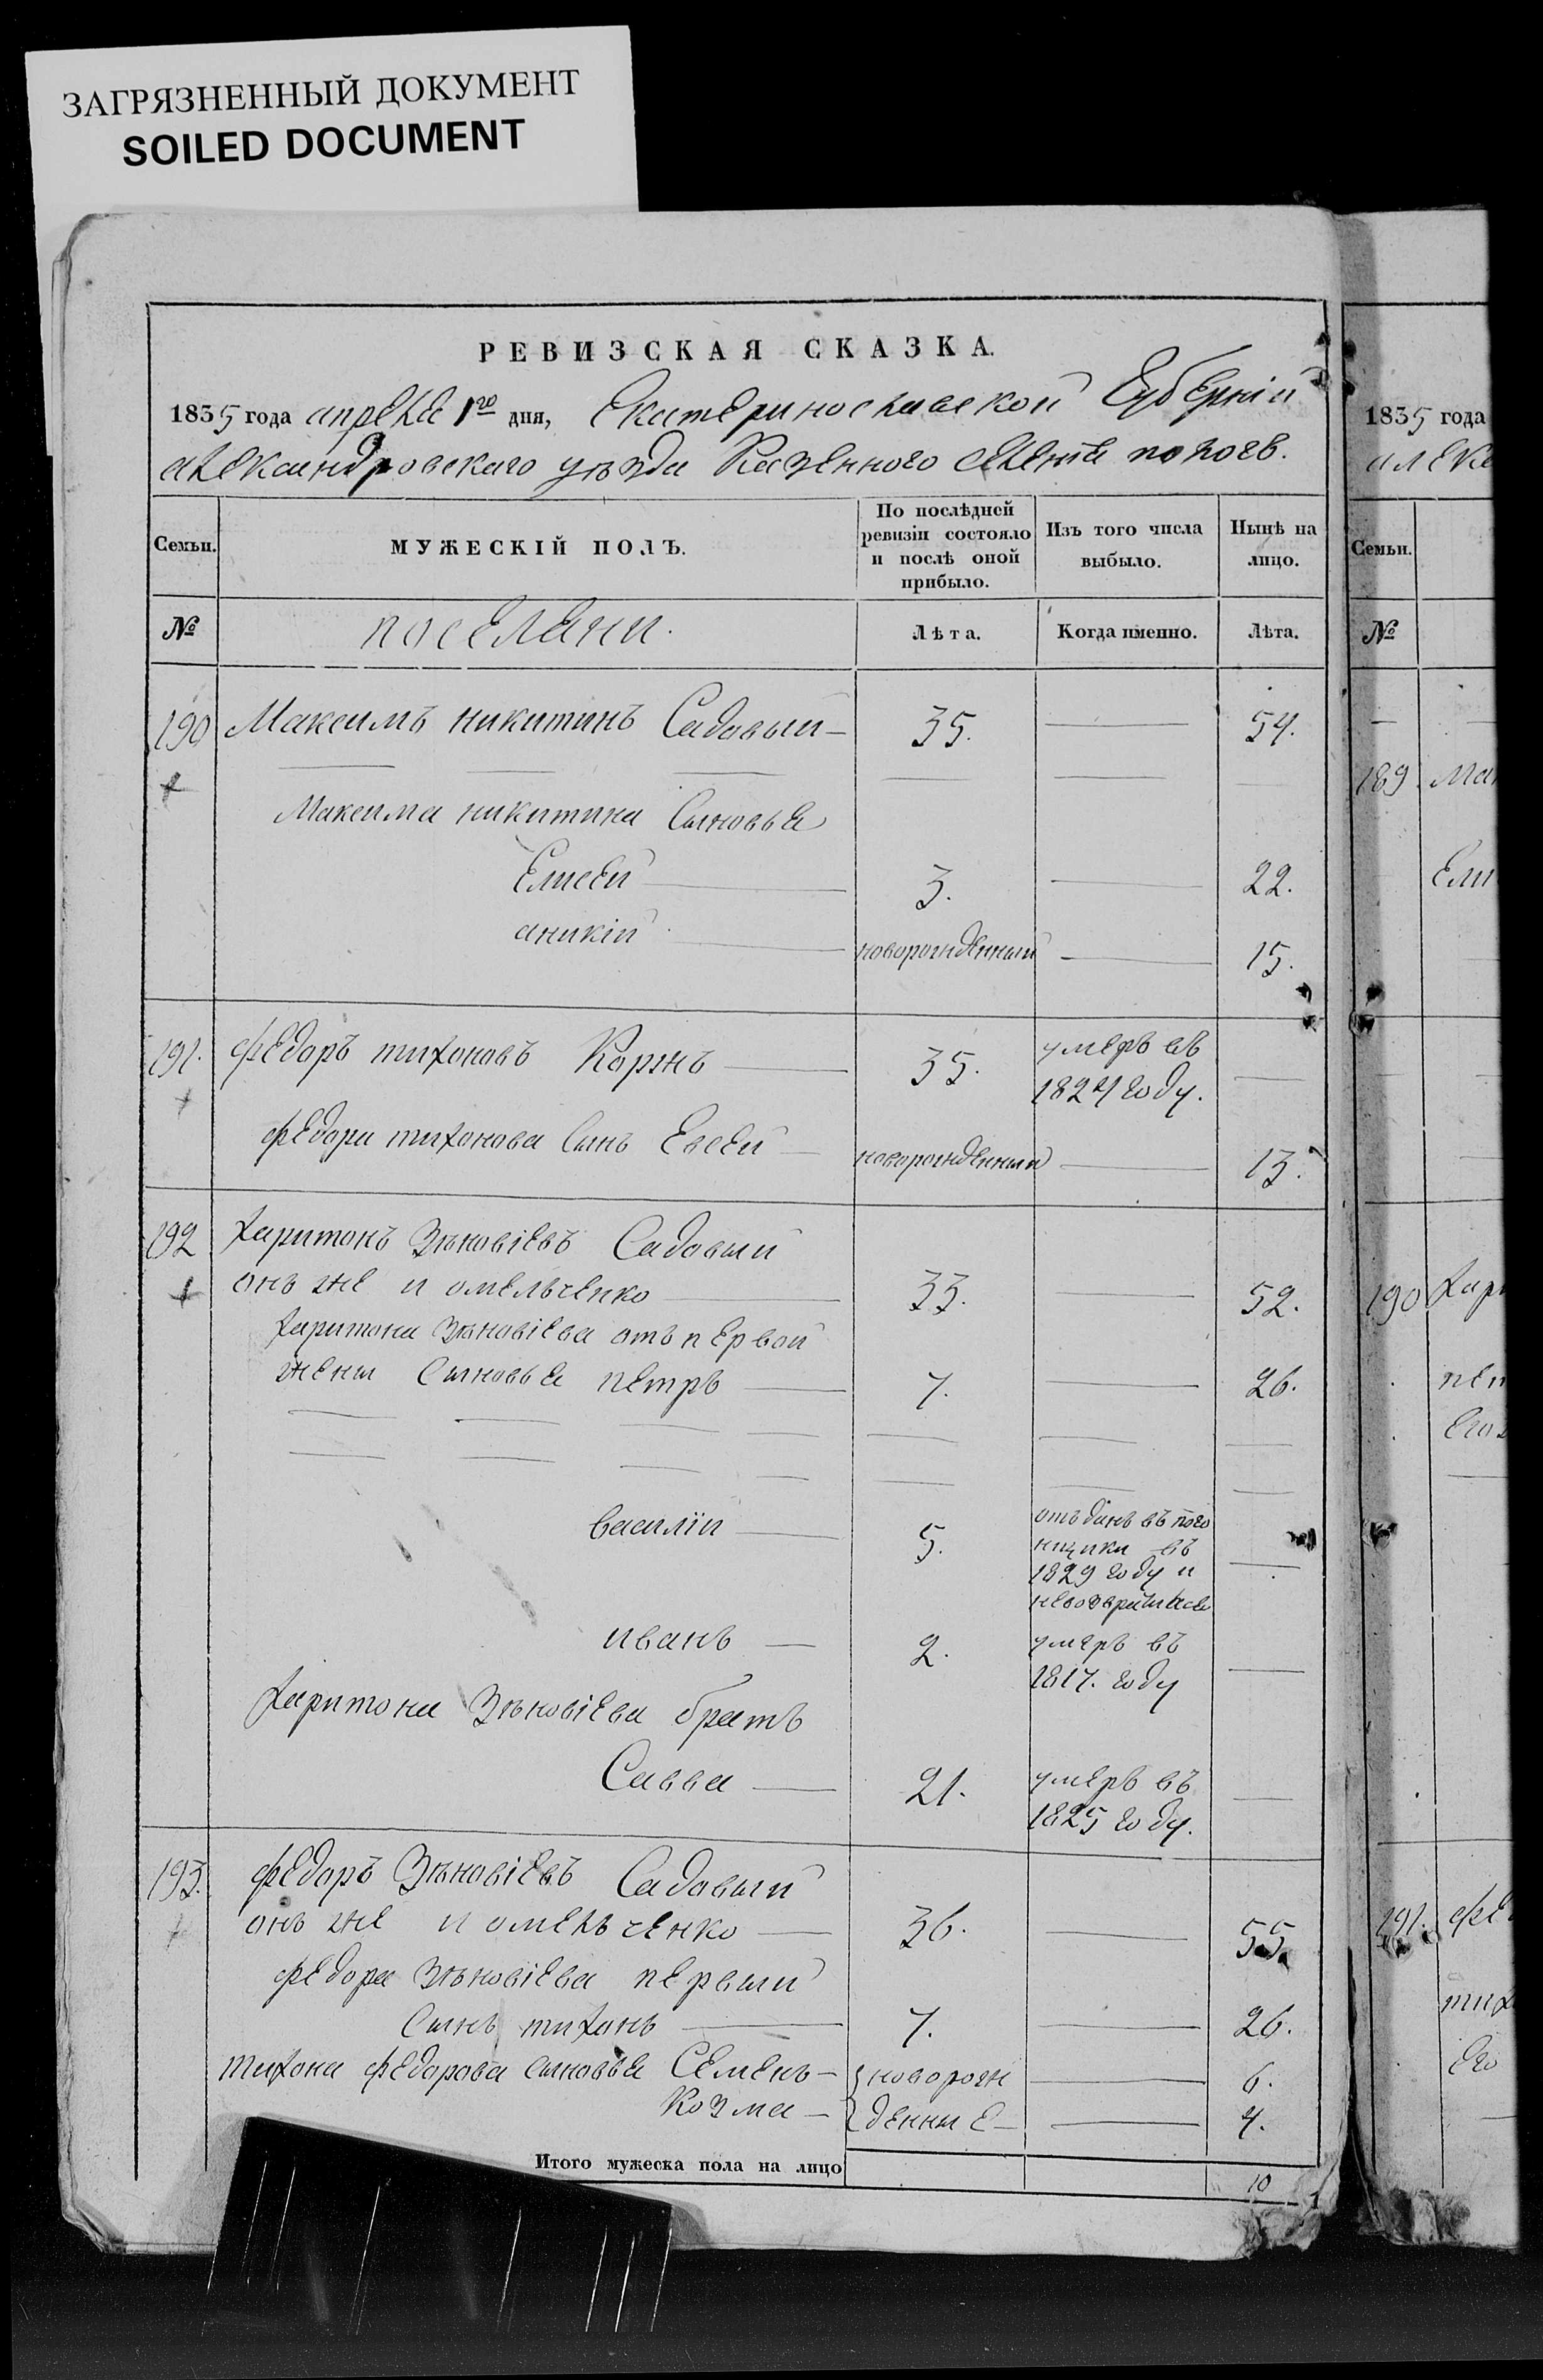 ЗАГРЯЗНЕННЫЙ ДОКУМЕНТ
SOILED DOCUMENT
РЕВИЗСКАЯ СКАЗКА.
1835 года апреля 1го дня, Екатеринославской Губерніи
александровскаго уѣзда Казенного селенія пологъ.
Семьи.
МУЖЕСКІЙ ПОЛЪ.
По послѣдней
ревизіи состояло
и послѣ оной
прибыло.
Изъ того числа
выбыло.
Нынѣ на
лицо.
№
поселяни.
Лѣта.
Когда именно.
Лѣта.
190 Максимъ никитинъ Садовый 35. 54.
Максима никитина Сыновья
Елисей 3. 22.
аникій новорожденный 15.
191. федоръ тихоновъ Коржъ 35. умеръ въ
1824 году.
федора тихонова Сынъ Евсей новорожденный 13.
192 харитонъ Зѣновіевъ Садовый
онъ же и омельченко 33. 52.
харитона Зѣновіева отъ первой
жены Сыновья петръ 7. 26.
василій 5. отъдань въ пого
нщики въ
1829 году и
невозвратился
иванъ 2. умеръ въ
1817. году
харитона Зѣновіева братъ
Савва 21. умеръ въ
1825 году.
193. федоръ Зѣновіевъ Садовый
онъ же и омельченко 36. 55.
федора Зѣновіева первый
Сынъ тихонъ 7. 26.
тихона федорова сыновья Семенъ новорож 6.
Козма денные 4.
Итого мужеска пола на лицо 10
1835 года
алекс
Семьи.
№
189 Мак
Ели
190 хари
пет
Его
191. фе
тих
Его